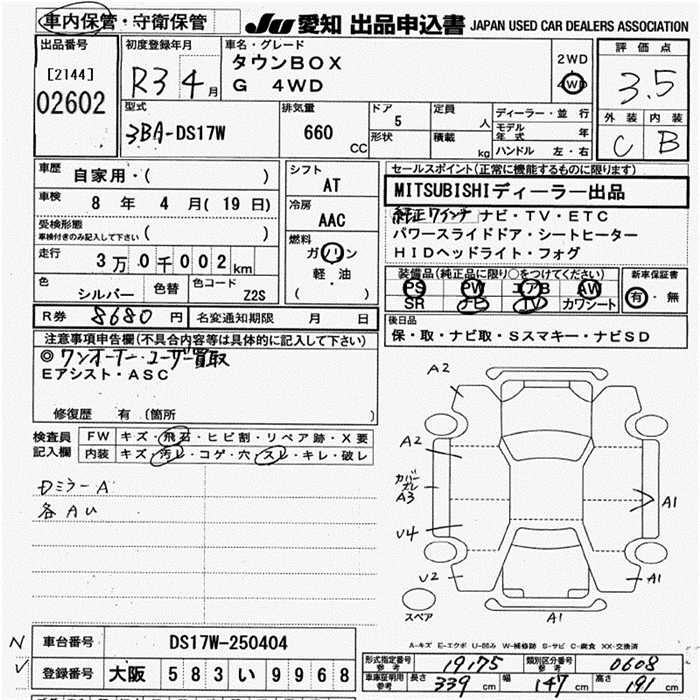 車内保管・守衛保管
JU 愛知 出品申込書 JAPAN USED CAR DEALERS ASSOCIATION
出品番号
[2144]
02602
初度登録年月
R3 4月
車名・グレード
タウンBOX
G 4WD
2WD
4WD
評価点
3.5
外装 内装
C B
型式
3BA-DS17W
排気量
660 CC
ドア 5
形状
定員 人
積載 kg
ディーラー・並行
モデル年式 年
ハンドル 左・右
車歴 自家用・( )
車検 8年 4月(19日)
受検形態
車検付きのみ記入して下さい ( )
走行 3万0千002km
色 シルバー 色替 色コード Z2S
シフト
AT
冷房
AAC
燃料
ガソリン
軽・油
( )
セールスポイント(正常に機能するものに限ります)
MITSUBISHIディーラー出品
純正7インチナビ・TV・ETC
パワースライドドア・シートヒーター
HIDヘッドライト・フォグ
装備品(純正品に限り○をつけてください)
PS PW エアB AW
SR ナビ TV カワシート
新車保証書
有・無
R券 8680円 名変通知期限 月 日
後日品
保・取・ナビ取・Sスマキー・ナビSD
注意事項申告欄(不具合内容等は具体的に記入して下さい)
◎ワンオーナー・ユーザー買取
Eアシスト・ASC
修復歴 有(箇所 )
検査員記入欄
FW キズ・飛石・ヒビ割・リペア跡・X要
内装 キズ・汚レ・コゲ・穴・スレ・キレ・破レ
Dミラー A
各AU
A2
A2
カバーズレ
A3
U4
U2
A1
A1
A1
スペア
A-キズ E-エクボ U-凹み W-補修跡 S-サビ C-腐食 XX-交換済
N 車台番号 DS17W-250404
✓ 登録番号 大阪 583 い 9968
形式指定番号 参考 19175 類別区分番号 参考 0608
車庫証明用 参考 長さ 339cm 幅 147cm 高さ 191cm